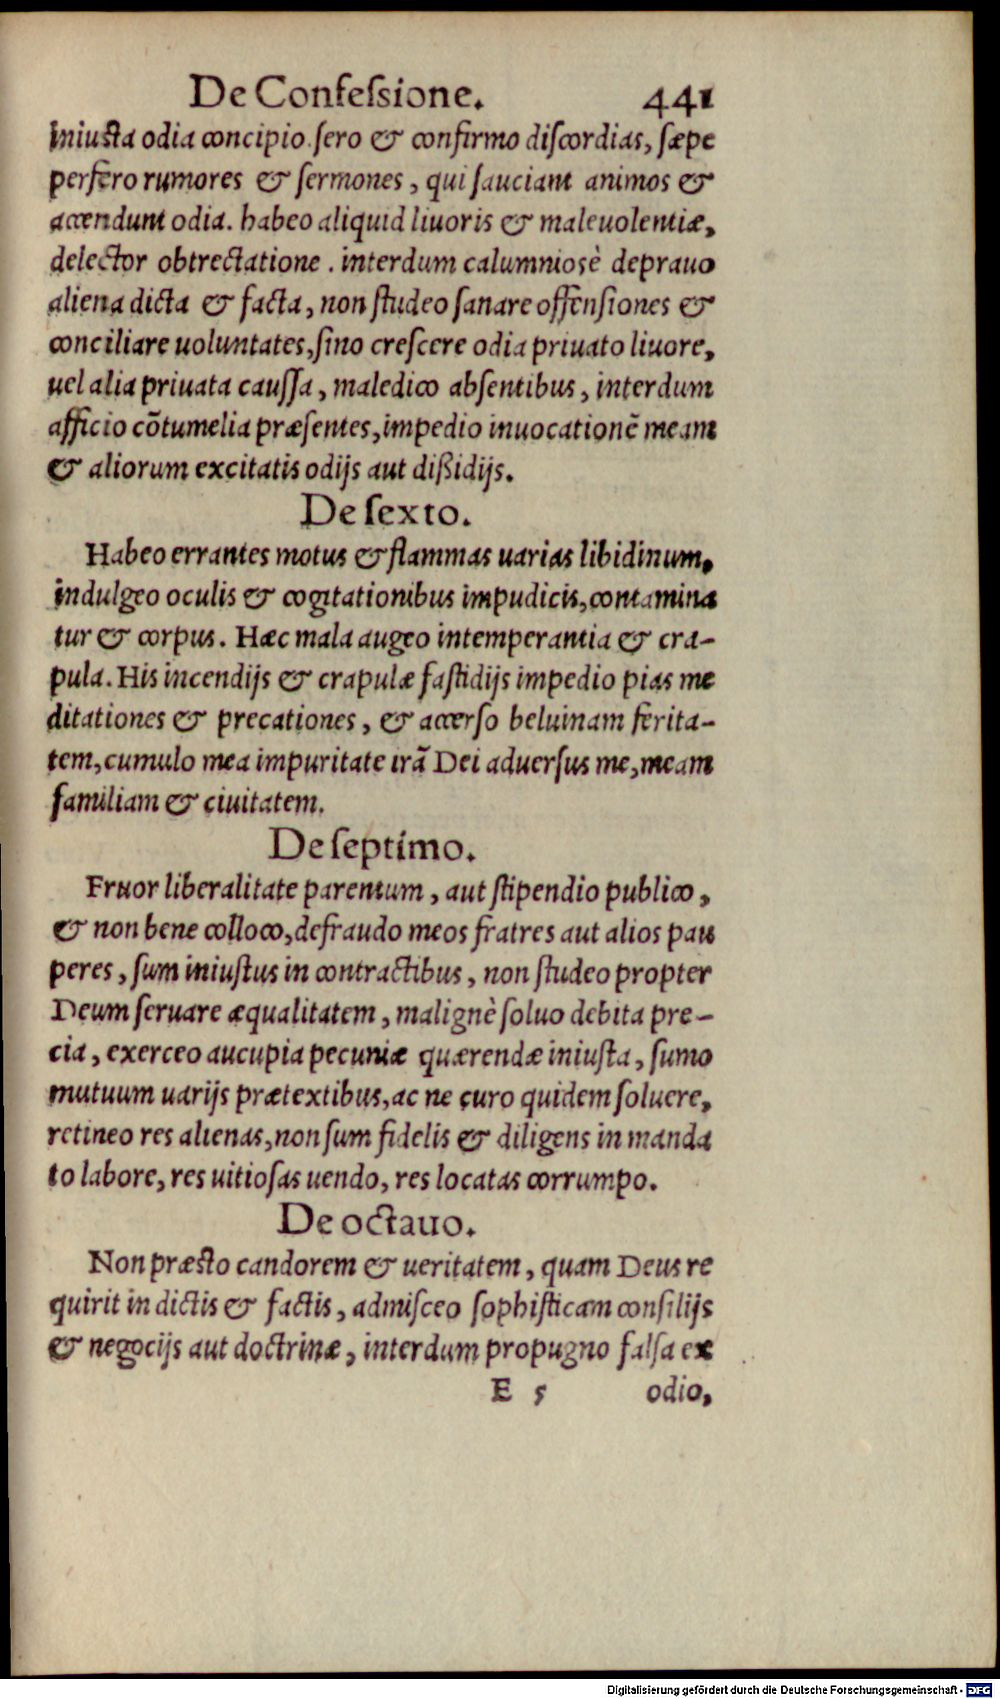 De Confeſsione. 441
iniusta odia concipio. ſero & confirmo diſcordias, ſæpe
perfero rumores & ſermones, qui ſauciant animos &
accendunt odia. habeo aliquid liuoris & maleuolentiæ,
delector obtrectatione. interdum calumniosè deprauo
aliena dicta & facta, non ſtudeo ſanare offenſiones &
conciliare uoluntates, ſino creſcere odia priuato liuore,
uel alia priuata cauſſa, maledico abſentibus, interdum
afficio cōtumelia præſentes, impedio inuocationē meam
& aliorum excitatis odijs aut dißidijs.
De ſexto.
Habeo errantes motus & flammas uarias libidinum,
indulgeo oculis & cogitationibus impudicis, contamina
tur & corpus. Hæc mala augeo intemperantia & cra-
pula. His incendijs & crapulæ faſtidijs impedio pias me
ditationes & precationes, & accerſo beluinam ferita-
tem, cumulo mea impuritate irā Dei aduerſus me, meam
familiam & ciuitatem.
De ſeptimo.
Fruor liberalitate parentum, aut ſtipendio publico,
& non bene colloco, defraudo meos fratres aut alios pau
peres, ſum iniuſtus in contractibus, non ſtudeo propter
Deum ſeruare æqualitatem, malignè ſoluo debita pre-
cia, exerceo aucupia pecuniæ quærendæ iniuſta, ſumo
mutuum uarijs prætextibus, ac ne curo quidem ſoluere,
retineo res alienas, non ſum fidelis & diligens in manda
to labore, res uitioſas uendo, res locatas corrumpo.
De octauo.
Non præsto candorem & ueritatem, quam Deus re
quirit in dictis & factis, admiſceo ſophiſticam conſilijs
& negocijs aut doctrinæ, interdum propugno falſa ex
E 5 odio,
Digitalisierung gefördert durch die Deutsche Forschungsgemeinschaft - DFG